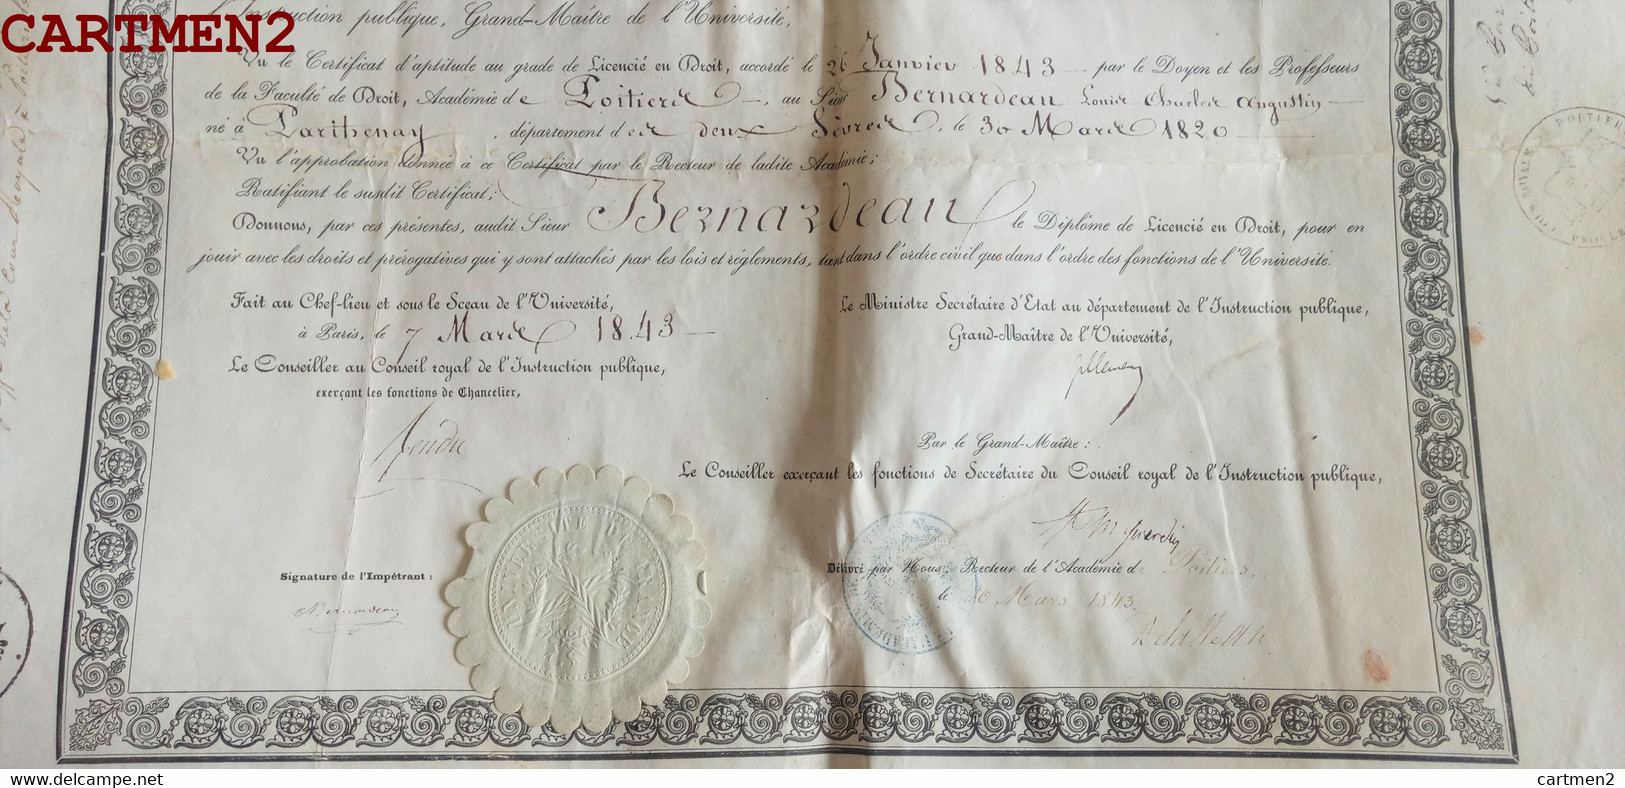 CARTMEN2
l'Instruction publique, Grand-Maître de l'Université,
Vu le Certificat d'aptitude au grade de Licencié en Droit, accordé le 26 Janvier 1843 par le Doyen et les Professeurs
de la Faculté de Droit, Académie de Poitiers, au Sieur Bernardeau Louis Charles Augustin
né à Parthenay, département des deux Sèvres, le 30 Mars 1820
Vu l'approbation donnée à ce Certificat par le Recteur de ladite Académie;
Ratifiant le susdit Certificat;
Donnons, par ces présentes, audit Sieur Bernardeau le Diplôme de Licencié en Droit, pour en
jouir avec les droits et prérogatives qui y sont attachés par les lois et réglements, tant dans l'ordre civil que dans l'ordre des fonctions de l'Université.
Fait au Chef-lieu et sous le Sceau de l'Université,
à Paris, le 7 Mars 1843
Le Conseiller au Conseil royal de l'Instruction publique,
exerçant les fonctions de Chancelier,
Rendu
Le Ministre Secrétaire d'Etat au département de l'Instruction publique,
Grand-Maître de l'Université,
Villemain
Par le Grand-Maître :
Le Conseiller exerçant les fonctions de Secrétaire du Conseil royal de l'Instruction publique,
Signature de l'Impétrant :
Bernardeau
Délivré par Nous, Recteur de l'Académie de Poitiers,
le 20 Mars 1843.
DE FRANCE
POITIERS
delcampe.net
cartmen2